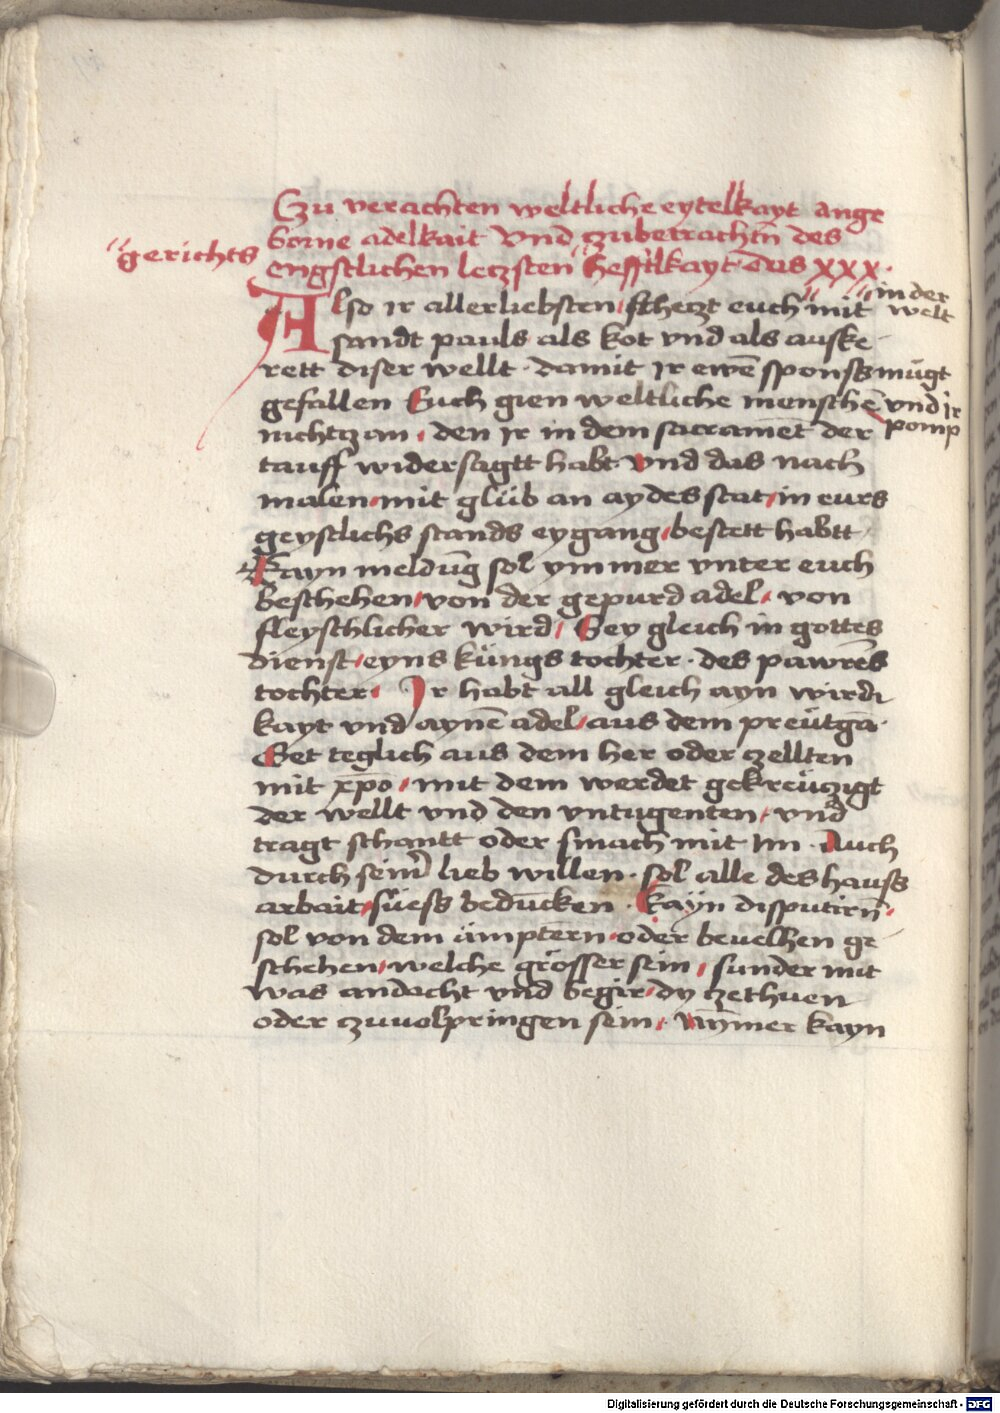 Czu verachten weltliche eytelkayt ange
borne adelkait Vnd zubetrachtn̄ des
"gerichts
engstlichen leczsten" hefftlkayt · das xxx ·
Also ir allerliebsten / scheczt euch" mit
"in der
welt
sandt pauls als kot vnd als auske
rett diser wellt · damit ir ewē sponsß mügt
gefallen Euch gien weltliche menschē
vnd ir
pomp
nichtz an / den ir in dem sacramēt der
tauff widersagtt habt · vnd das nach
malen / mit glüb an aydes stat / in eurs
geystlichs stands eygang / bestett habtt
Kayn meldūg sol ymmer vnter euch
beschehen / von der gepurd adel / von
fleyschlicher wird / Sey gleich in gottes
dienst / eyns küngs tochter · des pawrēs
tochter / Ir habt all gleich ayn wirdi
kayt vnd aynē adel / aus dem preütgā ·
Get teglich aus dem her oder zellten
mit xp̄o / mit dem werdet gekreüzigt
der wellt vnd den vntugenten / vnd
tragt schantt oder smach mit im · Auch
durch seinr̄ lieb willen · sol alle des hauss
arbait / süess bedūcken · Kayn disputirn̄ /
sol von dem ämptern / oder beuelhen ge
schehen / welche grösser sein / sunder mit
was andacht vnd begir / dy zethuen
oder zuuolpringen sein / Nym̄mer kayn
Digitalisierung gefördert durch die Deutsche Forschungsgemeinschaft - DFG